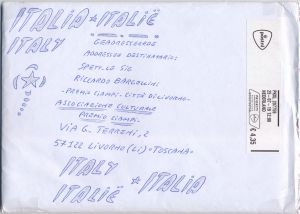 ITALIA ★ ITALIË
ITALY
GEADRESSEERDE
ADDRESSO DESTINATARIO:
SPETT.LE SIG
RICCARDO BARGELLINI
"PREMIO CIAMPI - CITTÀ DI LIVORNO"
ASSOCIAZIONE CULTURALE
PREMIO CIAMPI
VIA G. TERRENI, 2
57122 LIVORNO (LI) "TOSCANA"
ITALY
ITALIË ★ ITALIA
€ 4,35